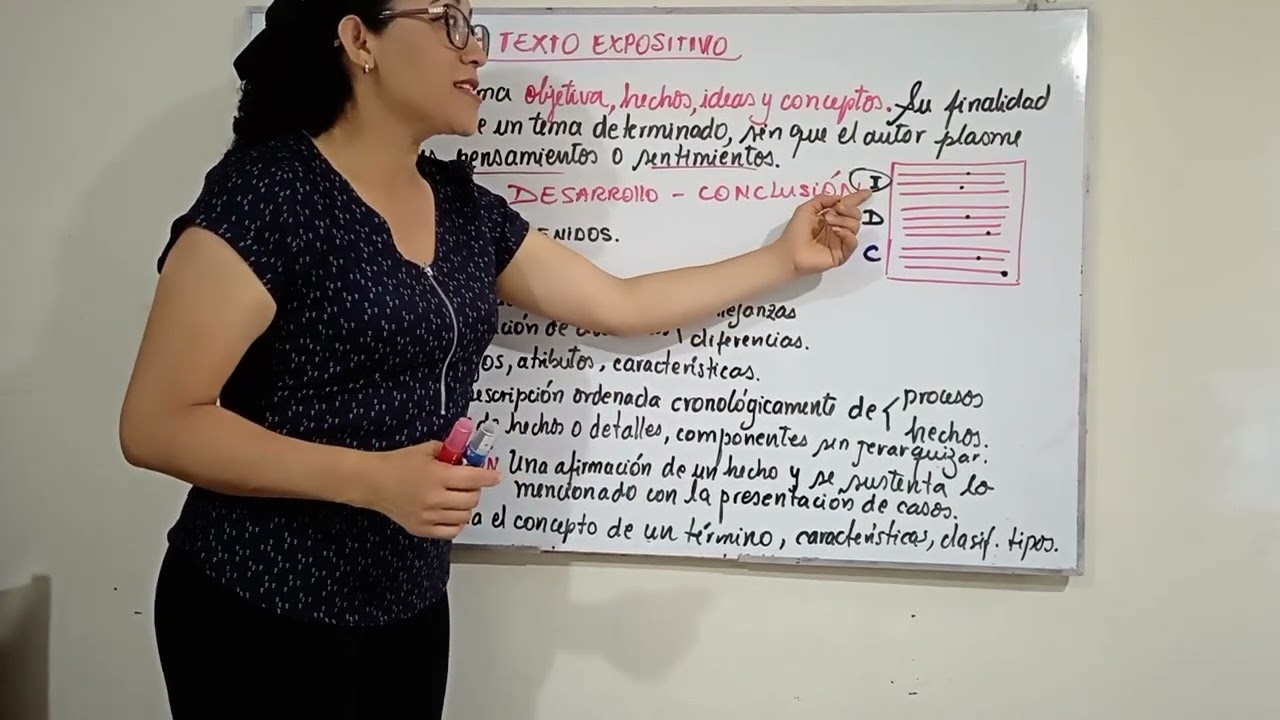 TEXTO EXPOSITIVO
ma objetiva, hechos, ideas y conceptos. Su finalidad
e un tema determinado, sin que el autor plasme
pensamientos o sentimientos.
DESARROLLO - CONCLUSIÓN
I
D
C
ENIDOS.
ejanzas
ción de
diferencias.
os, atributos, características.
escripción ordenada cronológicamente de { procesos
hechos.
de hechos o detalles, componentes sin jerarquizar.
N Una afirmación de un hecho y se sustenta lo
mencionado con la presentación de casos.
a el concepto de un término, características, clasif. tipos.